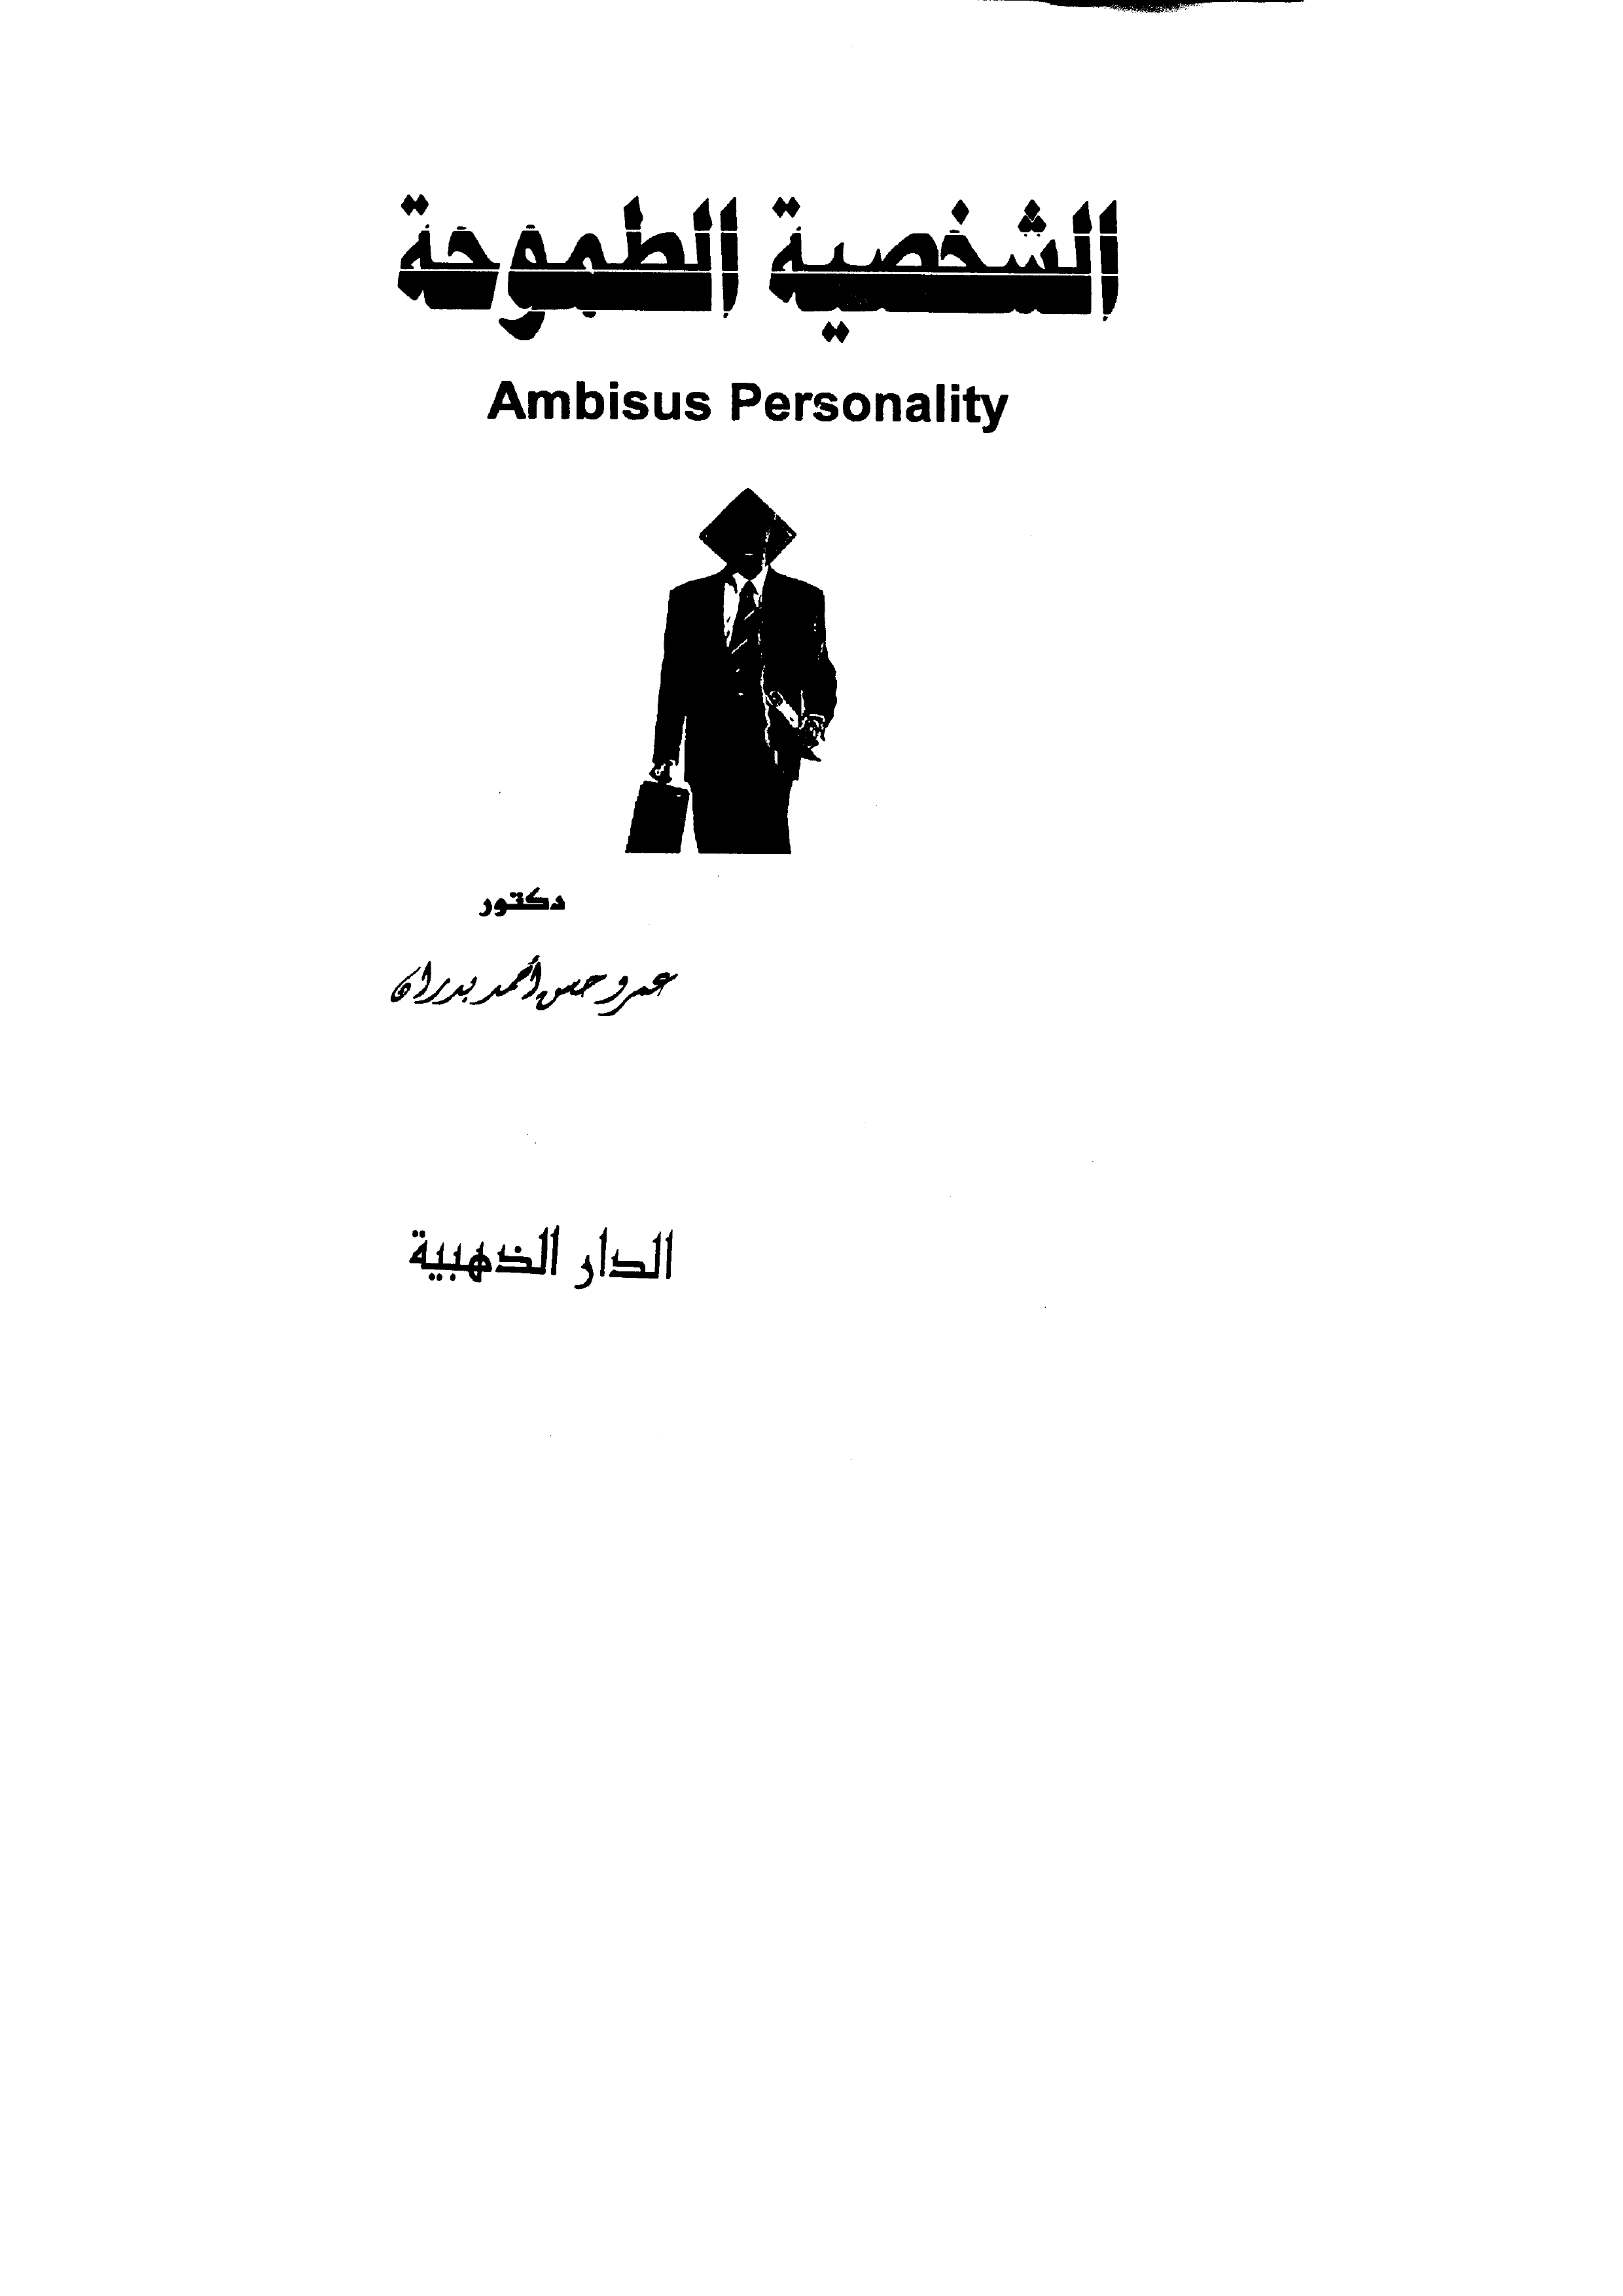 الشخصية الطموحة
Ambisus Personality
دكتور
عمرو حسن أحمد بدران
الدار الذهبية